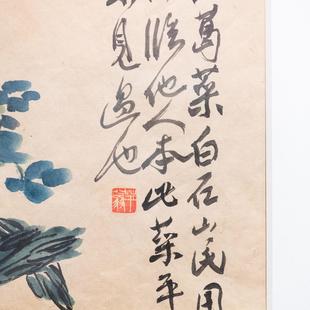 葛菜白石山民用
臨他人本此菜平
見過也